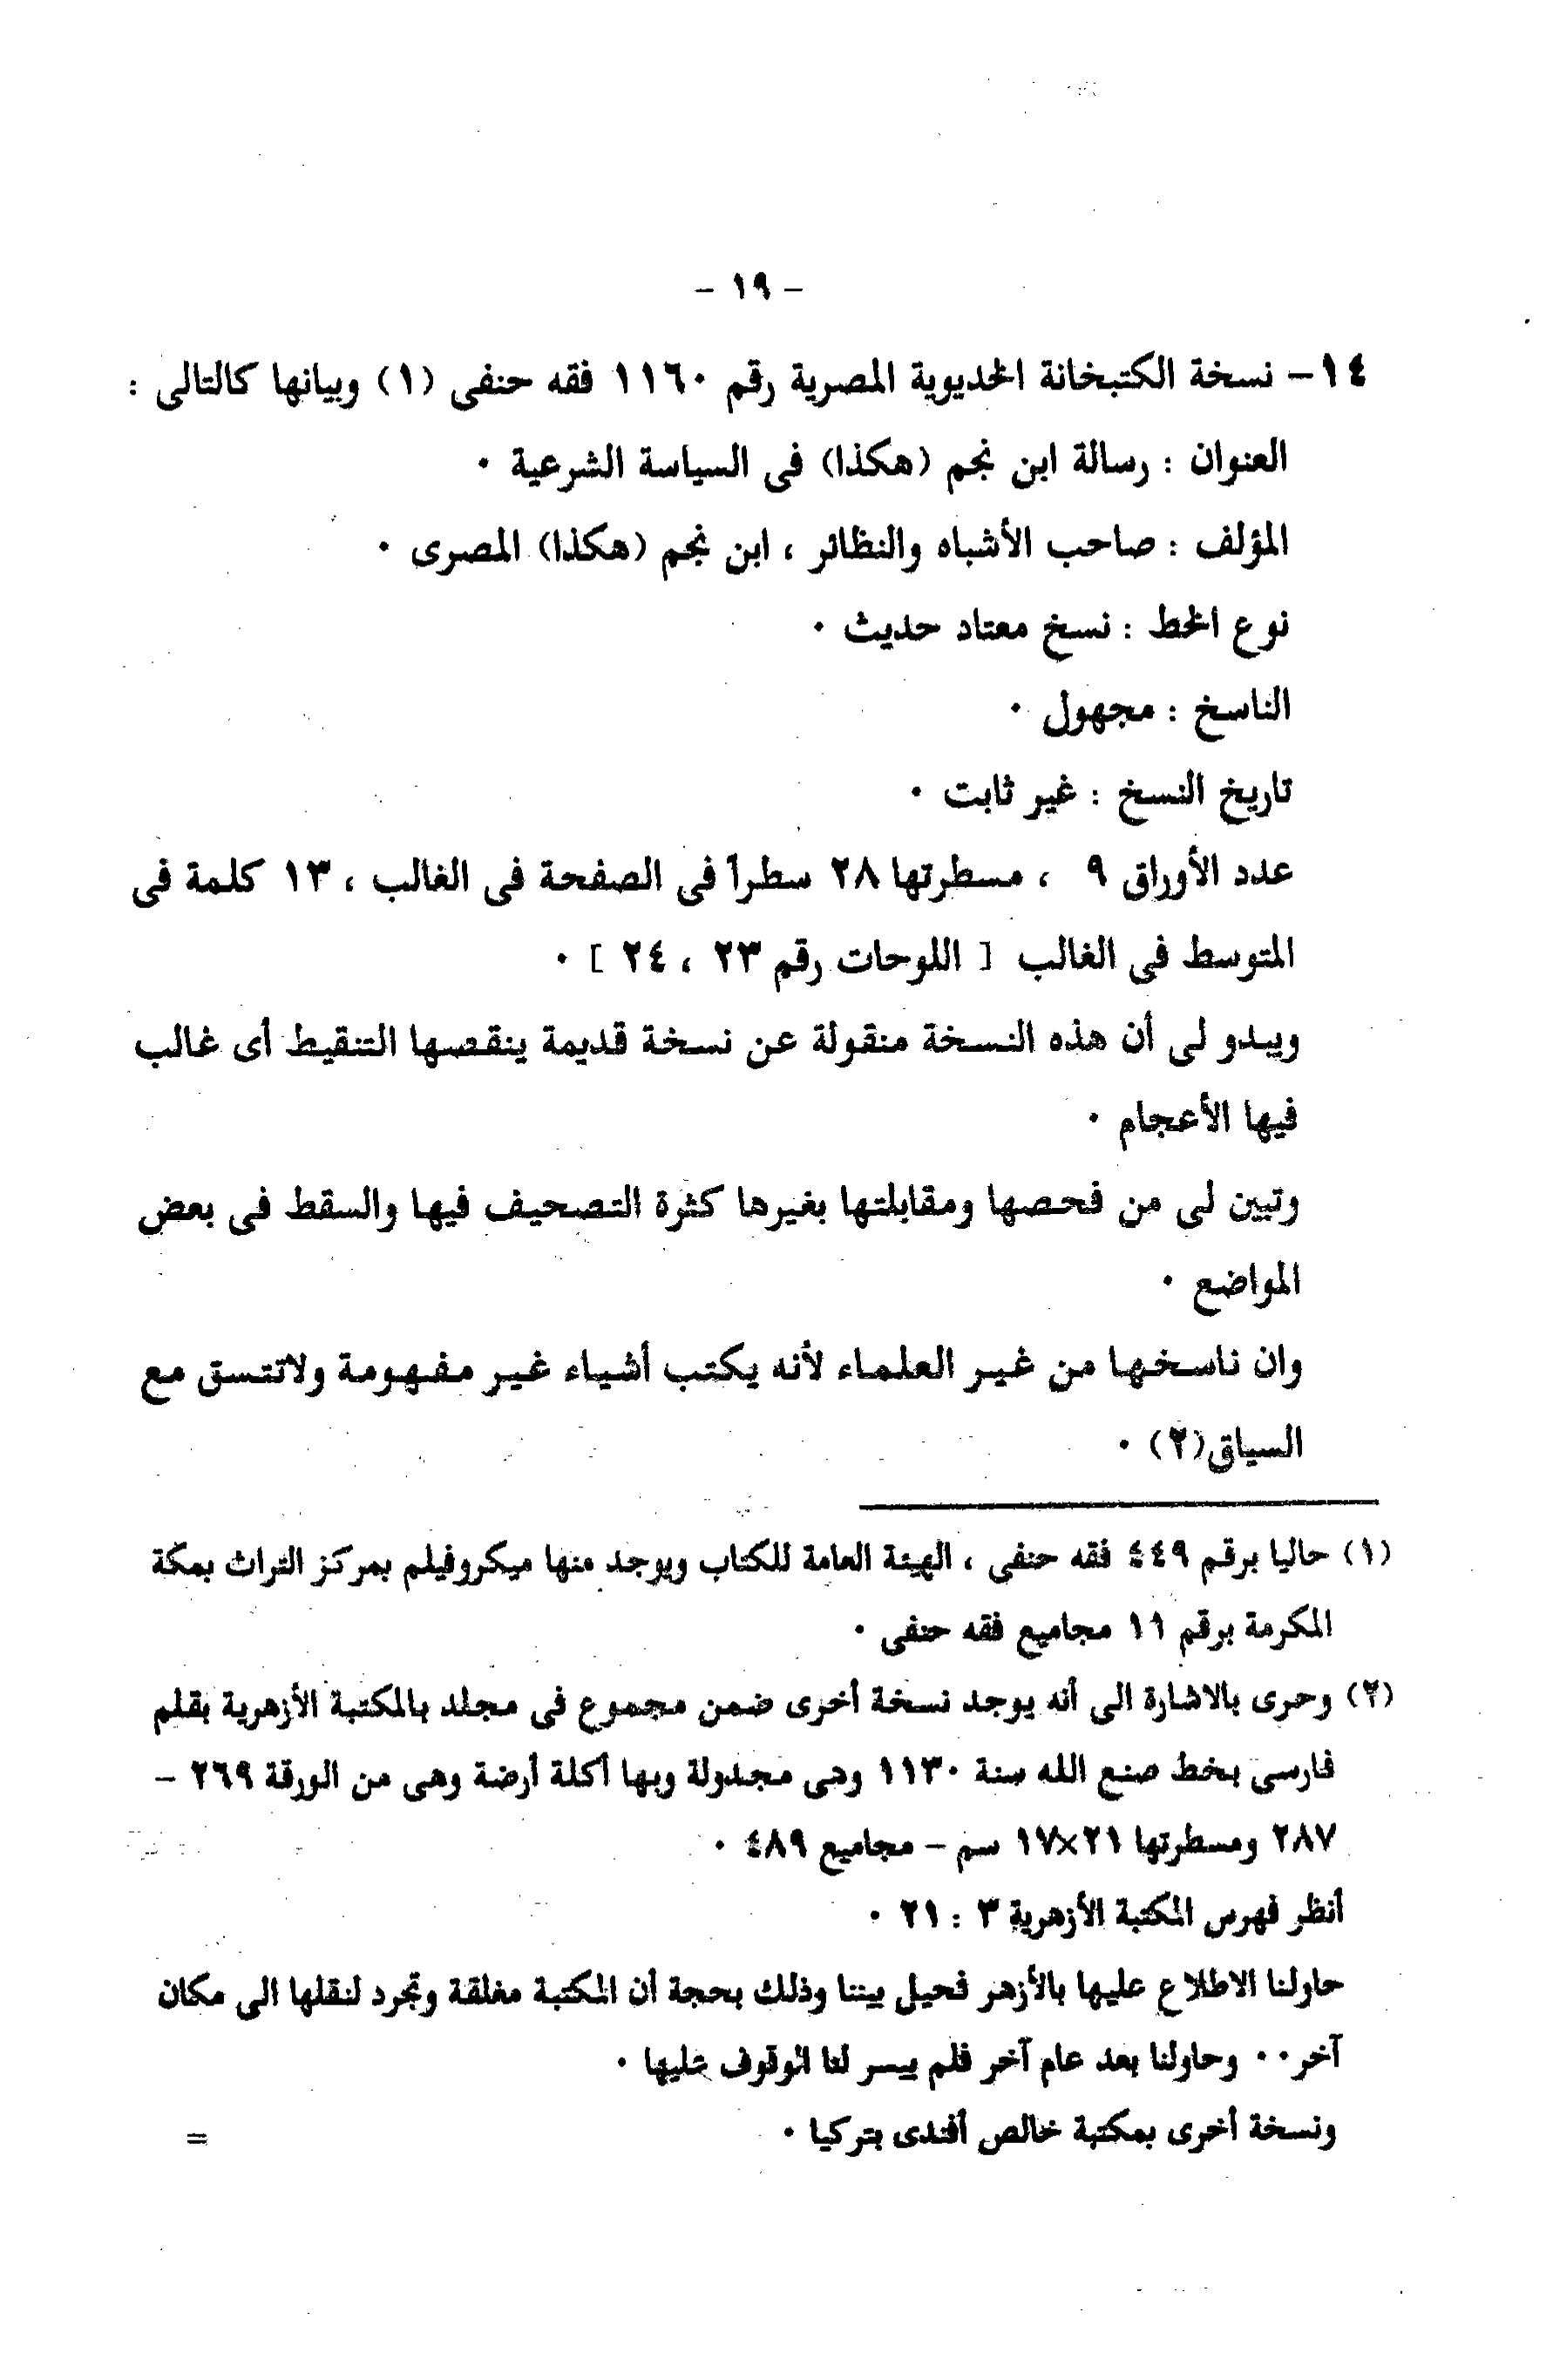 - ١٩ -
١٤- نسخة الكتبخانة الخديوية المصرية رقم ١١٦٠ فقه حنفى (١) وبيانها كالتالى :
العنوان : رسالة ابن نجم (هكذا) فى السياسة الشرعية ٠
المؤلف : صاحب الأشباه والنظائر ، ابن نجم (هكذا) المصرى ٠
نوع الخط : نسخ معتاد حديث ٠
الناسخ : مجهول ٠
تاريخ النسخ : غير ثابت ٠
عدد الأوراق ٩ ، مسطرتها ٢٨ سطرأ فى الصفحة فى الغالب ، ١٣ كلمة فى
المتوسط فى الغالب [ اللوحات رقم ٢٣ ، ٢٤ ] ٠
ويبدو لى أن هذه النسخة منقولة عن نسخة قديمة ينقصها التنقيط أى غالب
فيها الأعجام ٠
وتبين لى من فحصها ومقابلتها بغيرها كثرة التصحيف فيها والسقط فى بعض
المواضع ٠
وان ناسخها من غير العلماء لأنه يكتب أشياء غير مفهومة ولاتتسق مع
السياق(٢) ٠
(١) حاليا برقم ٤٤٩ فقه حنفى ، الهيئة العامة للكتاب ويوجد منها ميكروفيلم بمركز التراث بمكة
المكرمة برقم ١١ مجاميع فقه حنفى ٠
(٢) وحرى بالاشارة الى أنه يوجد نسخة أخرى ضمن مجموع فى مجلد بالمكتبة الأزهرية بقلم
فارسى بخط صنع الله سنة ١١٣٠ وهى مجدولة وبها أكلة أرضة وهى من الورقة ٢٦٩ -
٢٨٧ ومسطرتها ٢١×١٧ سم - مجاميع ٤٨٩ ٠
أنظر فهرس المكتبة الأزهرية ٣ : ٢١ ٠
حاولنا الاطلاع عليها بالأزهر فحيل بيننا وذلك بحجة أن المكتبة مغلقة وتجرد لنقلها الى مكان
آخر٠٠ وحاولنا بعد عام آخر فلم ييسر لنا الوقوف عليها ٠
ونسخة أخرى بمكتبة خالص أفندى بتركيا ٠
=